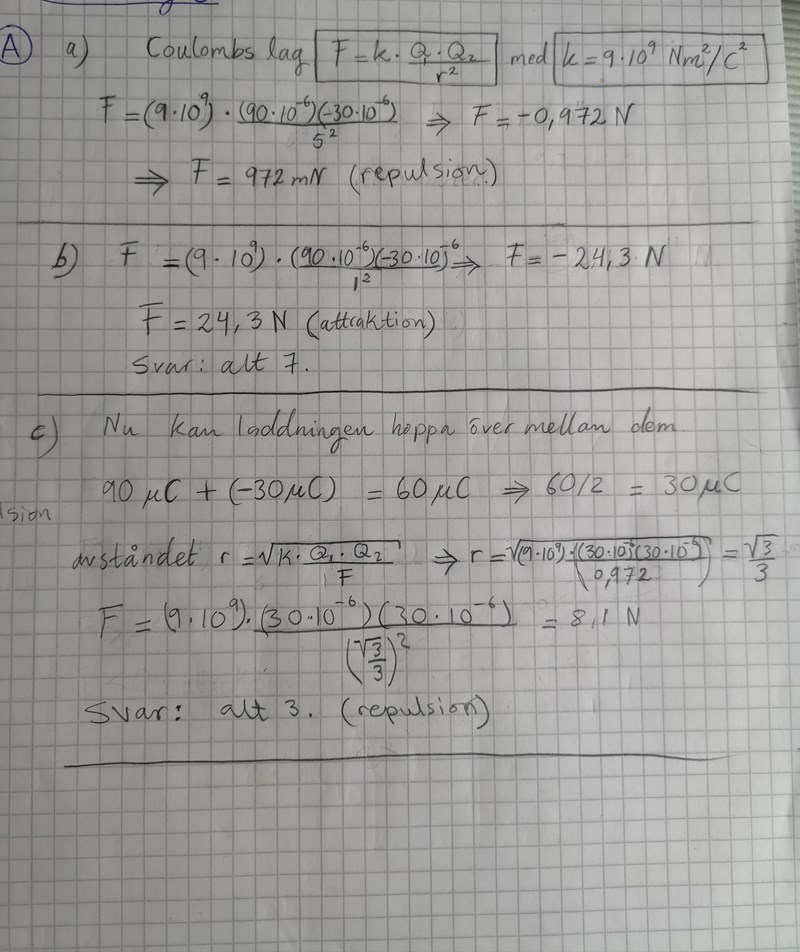 A a) Coulombs lag F = k · Q₁ · Q₂ / r² med k = 9 · 10⁹ Nm²/C²
F = (9 · 10⁹) · (90 · 10⁻⁶)(-30 · 10⁻⁶) / 5² ⇒ F = -0,972 N
⇒ F = 972 mN (repulsion)
b) F = (9 · 10⁹) · (90 · 10⁻⁶)(-30 · 10)⁻⁶ / 1² ⇒ F = -24,3 N
F = 24,3 N (attraktion)
Svar: alt 7.
c) Nu kan laddningen hoppa över mellan dem.
90 μC + (-30 μC) = 60 μC ⇒ 60/2 = 30 μC
sion
avståndet r = √(k · Q₁ · Q₂ / F) ⇒ r = √((9 · 10⁹) · (30 · 10⁻⁶)(30 · 10⁻⁶) / 0,972) = √3 / 3
F = (9 · 10⁹) · (30 · 10⁻⁶)(30 · 10⁻⁶) / (√3 / 3)² = 8,1 N
Svar: alt 3. (repulsion)